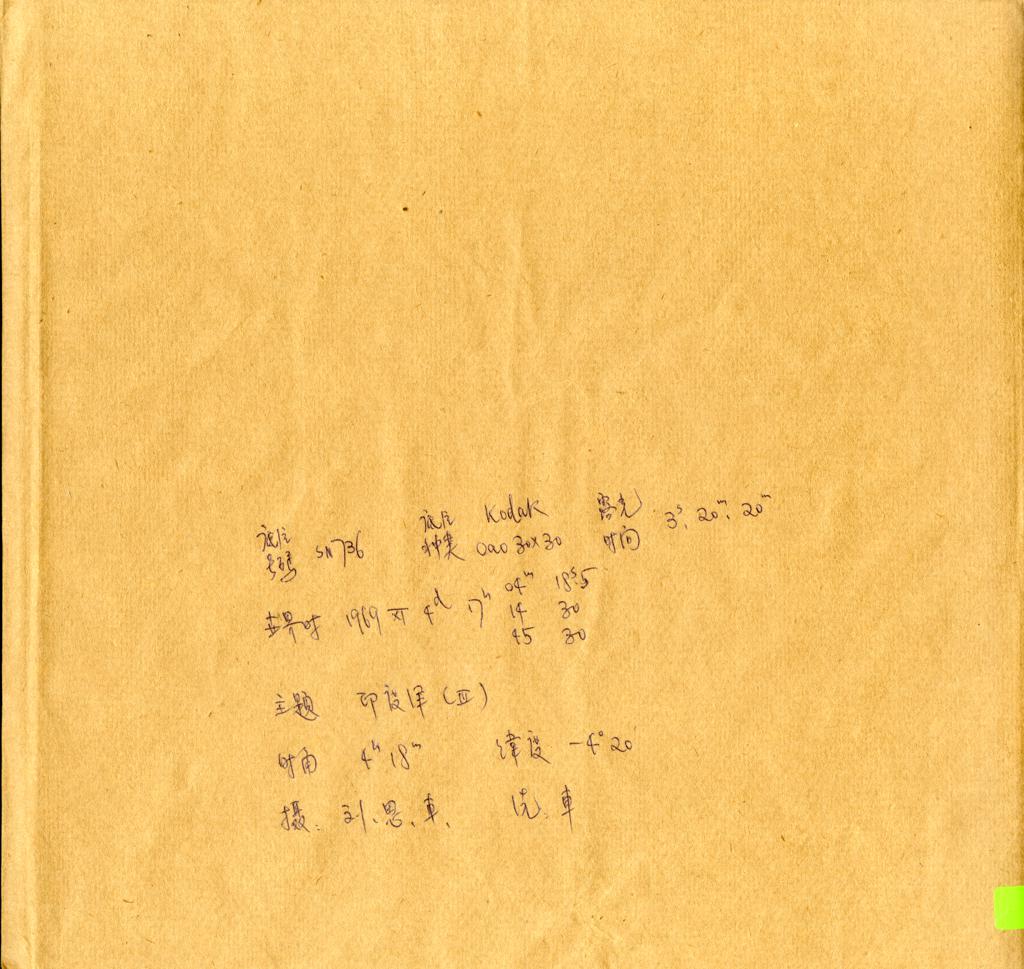 底片号码 SN736 底片种类 Kodak OaO 30×30 露光时间 3ˢ、20ᵐ、20ᵐ
世界时 1969 XI 4ᵈ 17ʰ 04ᵐ 18ˢ.5
14 30
45 30
主题 (III)
时角 4ʰ 18ᵐ 纬度 -4° 20'
摄: 刘、恩、車、 洗: 車